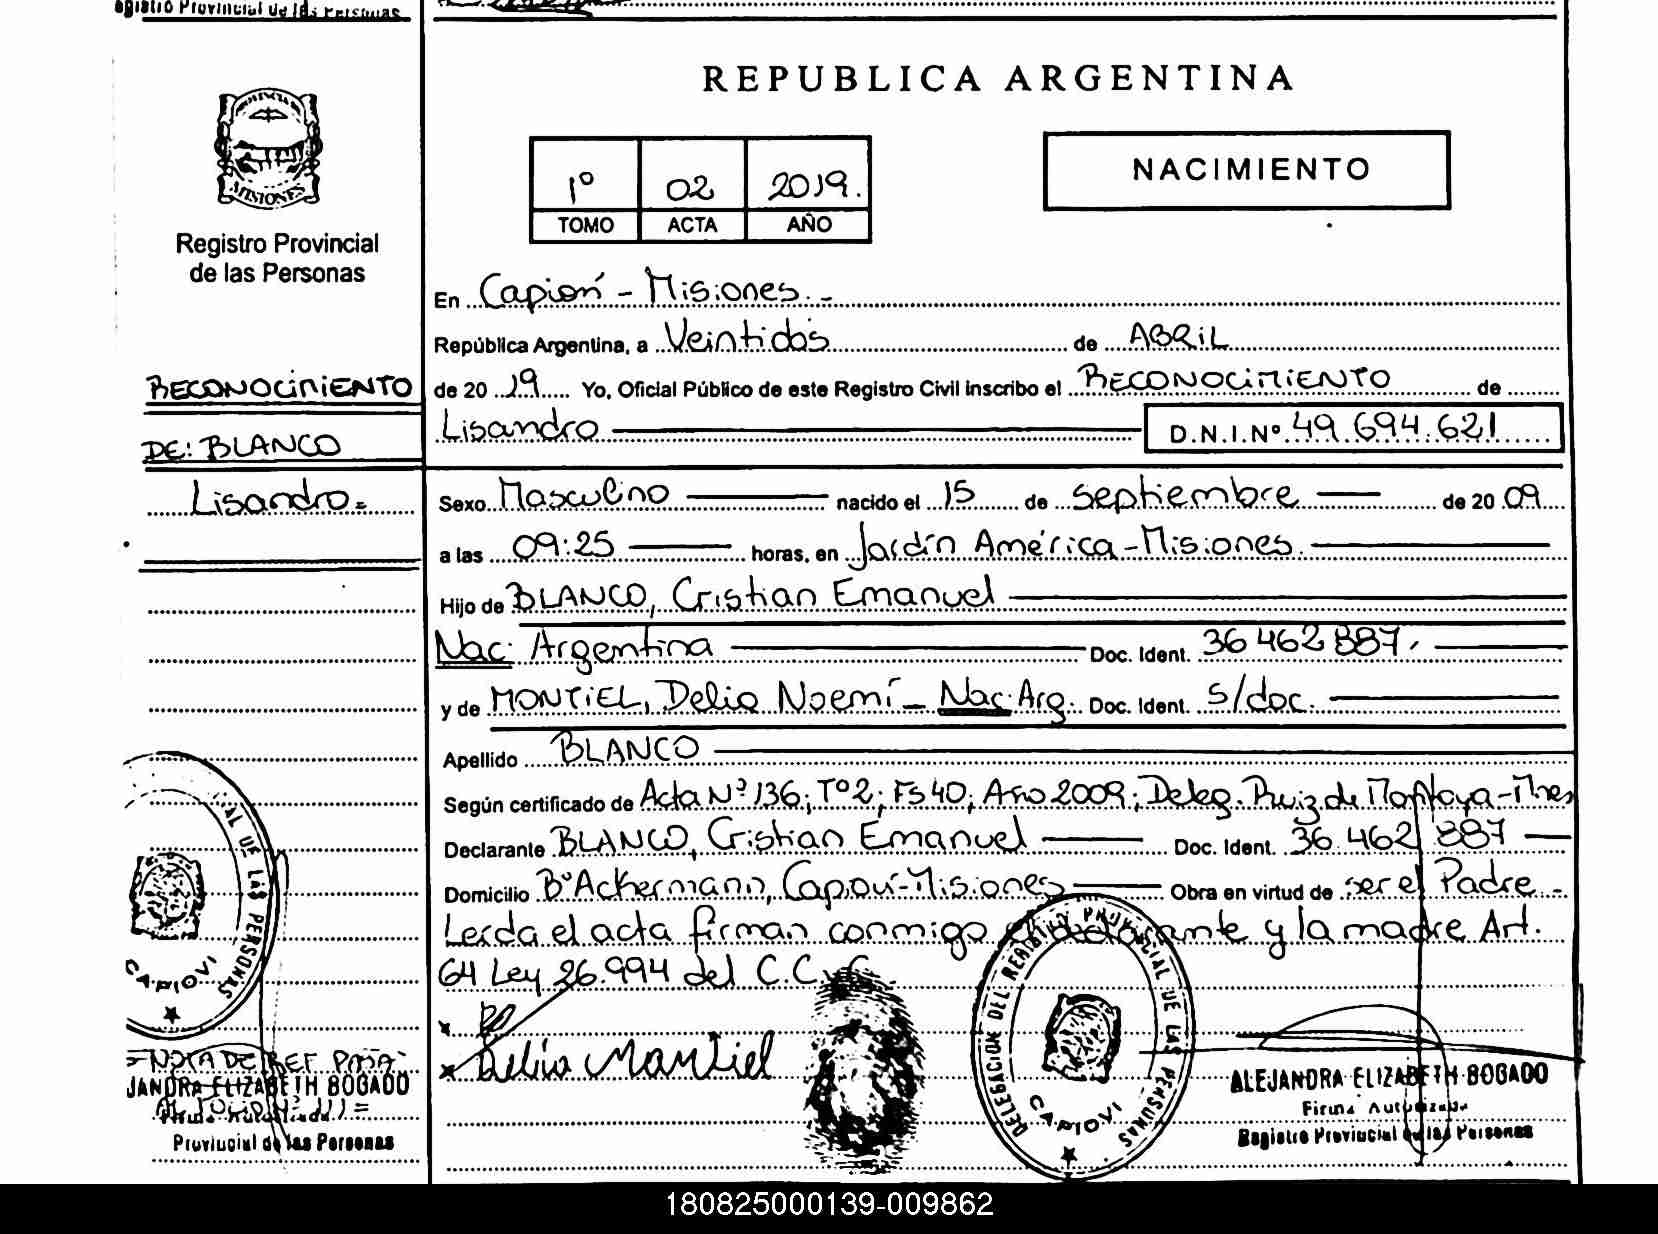 Registro Provincial de las Personas
REPUBLICA ARGENTINA
PROVINCIA DE
MISIONES
Registro Provincial
de las Personas
1º 02 2019.
TOMO ACTA AÑO
NACIMIENTO
En Capioví - Misiones. -
República Argentina, a Veintidós de ABRIL
de 20 19 Yo, Oficial Público de este Registro Civil inscribo el RECONOCIMIENTO de
Lisandro D.N.I.Nº 49.694.621
RECONOCIMIENTO
DE: BLANCO
Lisandro=
Sexo Masculino nacido el 15 de Septiembre de 20 09
a las 09:25 horas, en Jardín América - Misiones.
Hijo de BLANCO, Cristian Emanuel
Nac: Argentina Doc. Ident. 36 462 887.
y de MONTIEL, Delia Noemí - Nac: Arg. Doc. Ident. s/doc.
Apellido BLANCO
Según certificado de Acta Nº 136; Tº 2; Fs 40; Año 2009; Deleg. Ruiz de Montoya - Mnes
Declarante BLANCO, Cristian Emanuel Doc. Ident. 36.462 887
Domicilio Bº Ackermann, Capioví - Misiones Obra en virtud de ser el Padre. -
Leída el acta firman conmigo el declarante y la madre Art.
64 Ley 26.994 del C.C y C
x
x Delia Montiel
DELEGACION DEL REGISTRO PROVINCIAL DE LAS PERSONAS
CAPIOVI
ALEJANDRA ELIZABETH BOGADO
Firma Autorizada
Registro Provincial de las Personas
AL DE LAS PERSONAS
CAPIOVI
=NOTA DE REF PASA
JANDRA ELIZABETH BOGADO
AL FOLIO Nº
Firma Autorizada
Provincial de las Personas
180825000139-009862